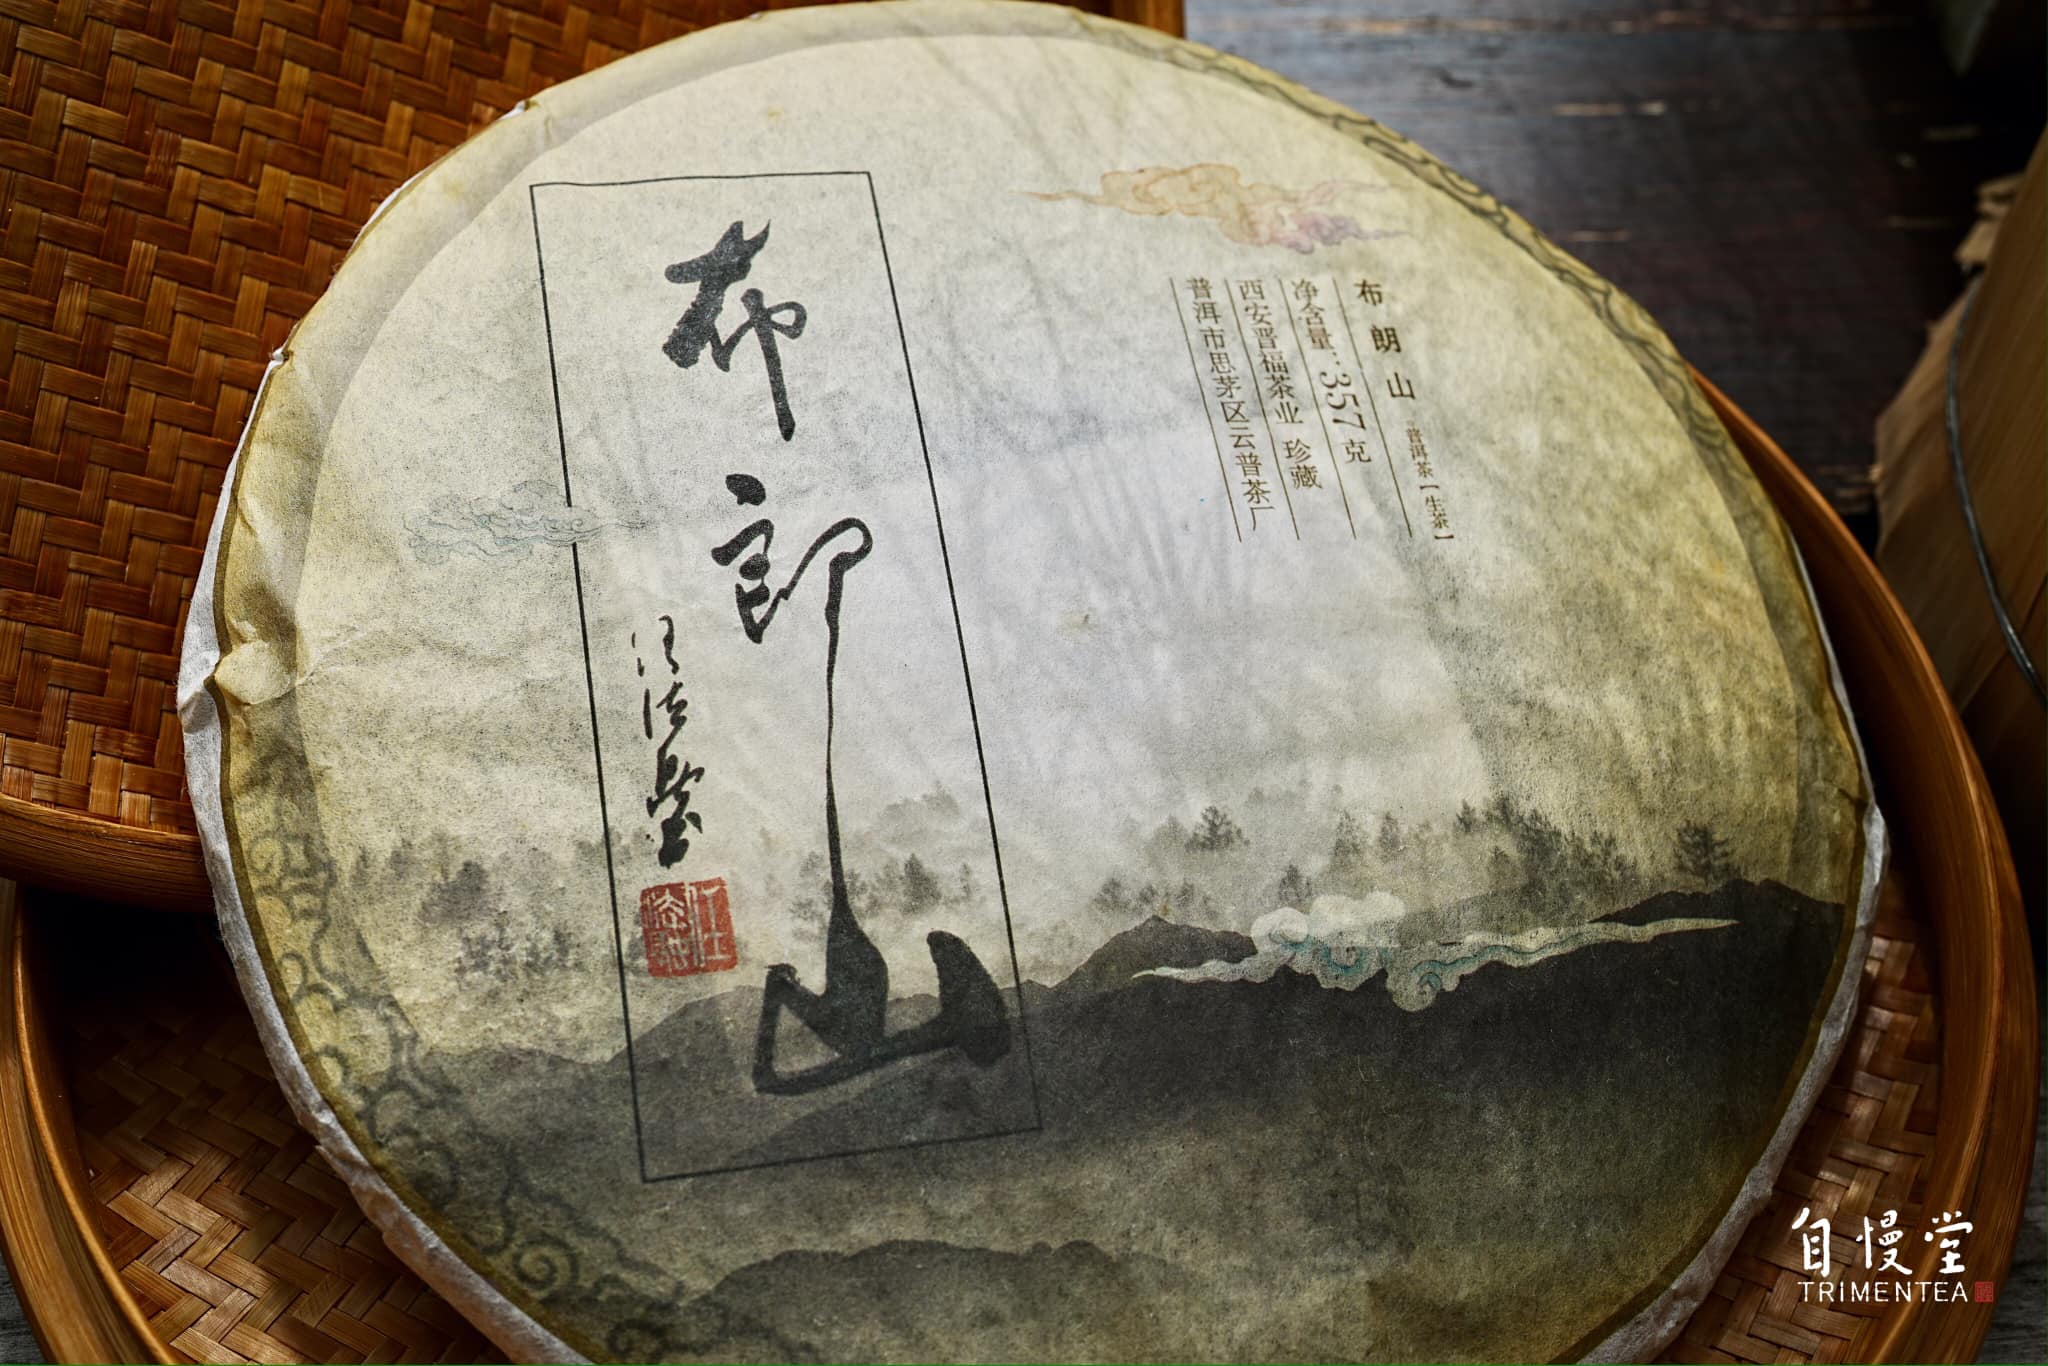 布朗山
布朗山 普洱茶【生茶】
净含量：357克
西安晋福茶业 珍藏
普洱市思茅区云普茶厂
自慢堂
TRIMENTEA